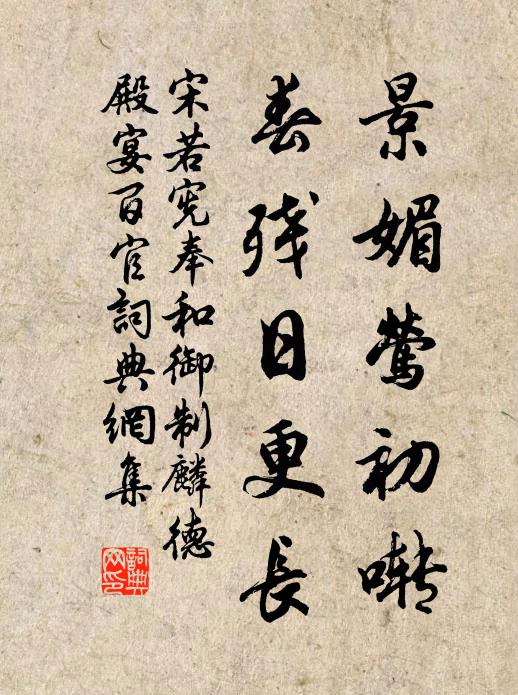 景媚鶯初囀
春殘日更長
宋若宪奉和御制麟德
殿宴百官詞典網集
詞典网印